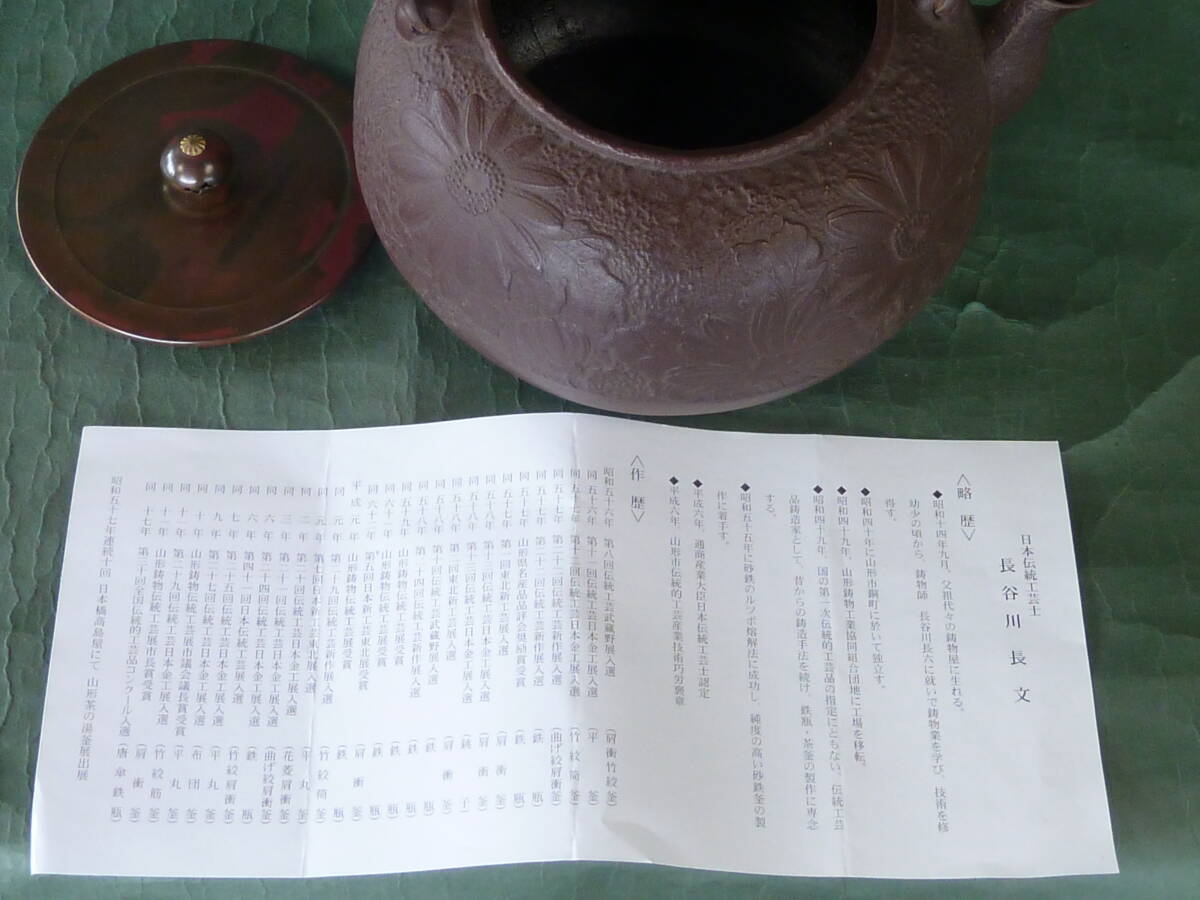 日本伝統工芸士
長谷川長文
〈略歴〉
◆昭和十四年九月、父祖代々の鋳物屋に生れる。
幼少の頃から、鋳物師　長谷川長六に就いで鋳物業を学び、技術を修
得す。
◆昭和四十年に山形市銅町に於いて独立す。
◆昭和四十九年、山形鋳物工業協同組合団地に工場を移転。
◆昭和四十九年、国の第一次伝統的工芸品の指定にともない、伝統工芸
品鋳造家として、昔からの鋳造手法を続け、鉄瓶・茶釜の製作に専念
する。
◆昭和五十五年に砂鉄のルツボ熔解法に成功し、純度の高い砂鉄釜の製
作に着手す。
◆平成六年、通商産業大臣日本伝統工芸士認定
◆平成六年、山形市伝統的工芸産業技術功労褒章
〈作歴〉
昭和五十六年　第八回伝統工芸武蔵野展入選　（肩衝竹紋釜）
同　五十六年　第十一回伝統工芸新作展入選　（平釜）
同　五十七年　第十二回伝統工芸日本金工展入選　（竹紋筒釜）
同　五十七年　第二十二回伝統工芸新作展入選　（曲げ紋肩衝釜）
同　五十七年　第二十一回伝統工芸新作展入選　（鉄瓶）
同　五十七年　山形県名産品評会奨励賞受賞　（鉄瓶）
同　五十七年　第一回東北新工芸展入選　（肩衝釜）
同　五十八年　第十三回伝統工芸日本金工展入選　（肩衝釜）
同　五十八年　第十三回伝統工芸日本金工展入選　（銚子）
同　五十八年　第二回東北新工芸展入選　（肩衝釜）
同　五十八年　第十回伝統工芸武蔵野展入選　（鉄瓶）
同　五十八年　第二十四回伝統工芸新作展入選　（鉄瓶）
同　五十九年　山形鋳物伝統工芸展受賞　（鉄瓶）
同　六十年　山形鋳物伝統工芸新作展入選　（鉄瓶）
同　六十二年　第五回日本新工芸東北展受賞　（鉄瓶）
平成元年　山形鋳物伝統工芸展受賞　（肩衝釜）
同　元年　第二十九回伝統工芸新作展入選　（鉄瓶）
同　元年　第七回日本新工芸東北展入選　（竹紋筒釜）
同　二年　第二十回伝統工芸日本金工展入選　（平丸釜）
同　三年　第二十一回伝統工芸日本金工展入選　（花菱肩衝釜）
同　六年　第二十四回伝統工芸日本金工展入選　（曲げ紋肩衝釜）
同　六年　第四十一回日本伝統工芸展入選　（鉄瓶）
同　七年　第二十五回伝統工芸日本金工展入選　（竹紋肩衝釜）
同　九年　第二十七回伝統工芸日本金工展入選　（平丸釜）
同　十一年　第二十九回伝統工芸日本金工展入選　（布団釜）
同　十一年　山形鋳物伝統工芸展市議会議長賞受賞　（平丸釜）
同　年　山形鋳物伝統工芸日本金工展入選　（竹紋筋釜）
同　年　山形鋳物伝統工芸展市長賞受賞　（肩衝釜）
同　十七年　第三十回全国伝統的工芸品コンクール入選　（唐傘鉄瓶）
昭和五十七年連続十回　日本橋高島屋にて　山形茶の湯釜展出展